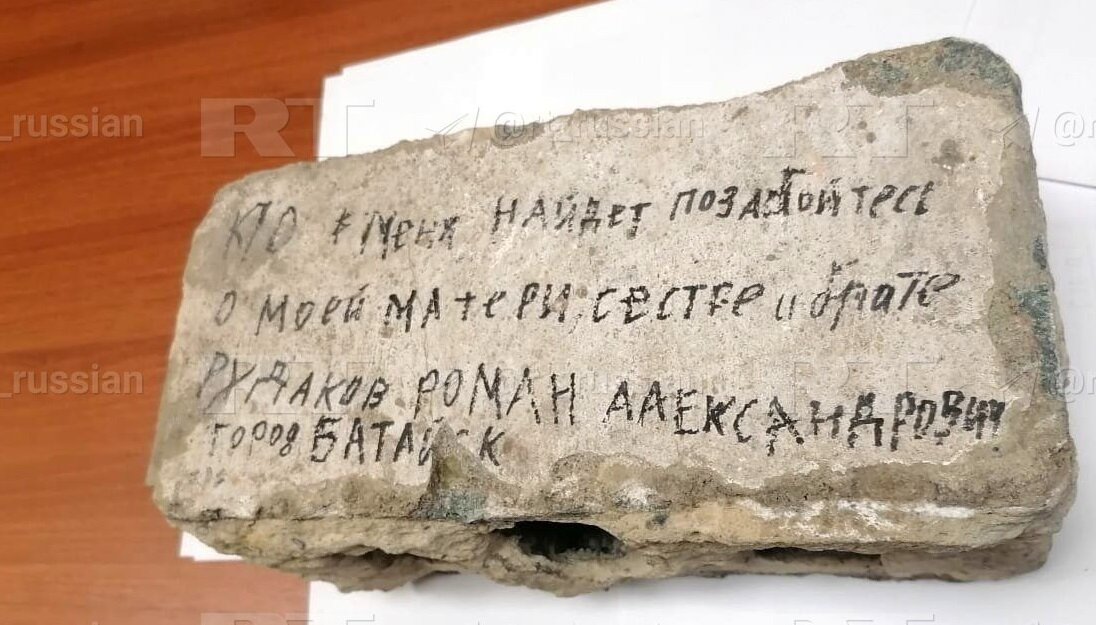 КТО меня НАЙДЕТ ПОЗАБОЙТЕСЬ
О МОЕЙ МАТЕРИ, СЕСТРЕ и брате
РУДАКОВ РОМАН АЛЕКСАНДРОВИЧ
ГОРОД БАТАЙСК
_russian RT @rt_russian RT @r
_russian RT @rt_russian RT @r
_russian RT @rt_russian RT @r